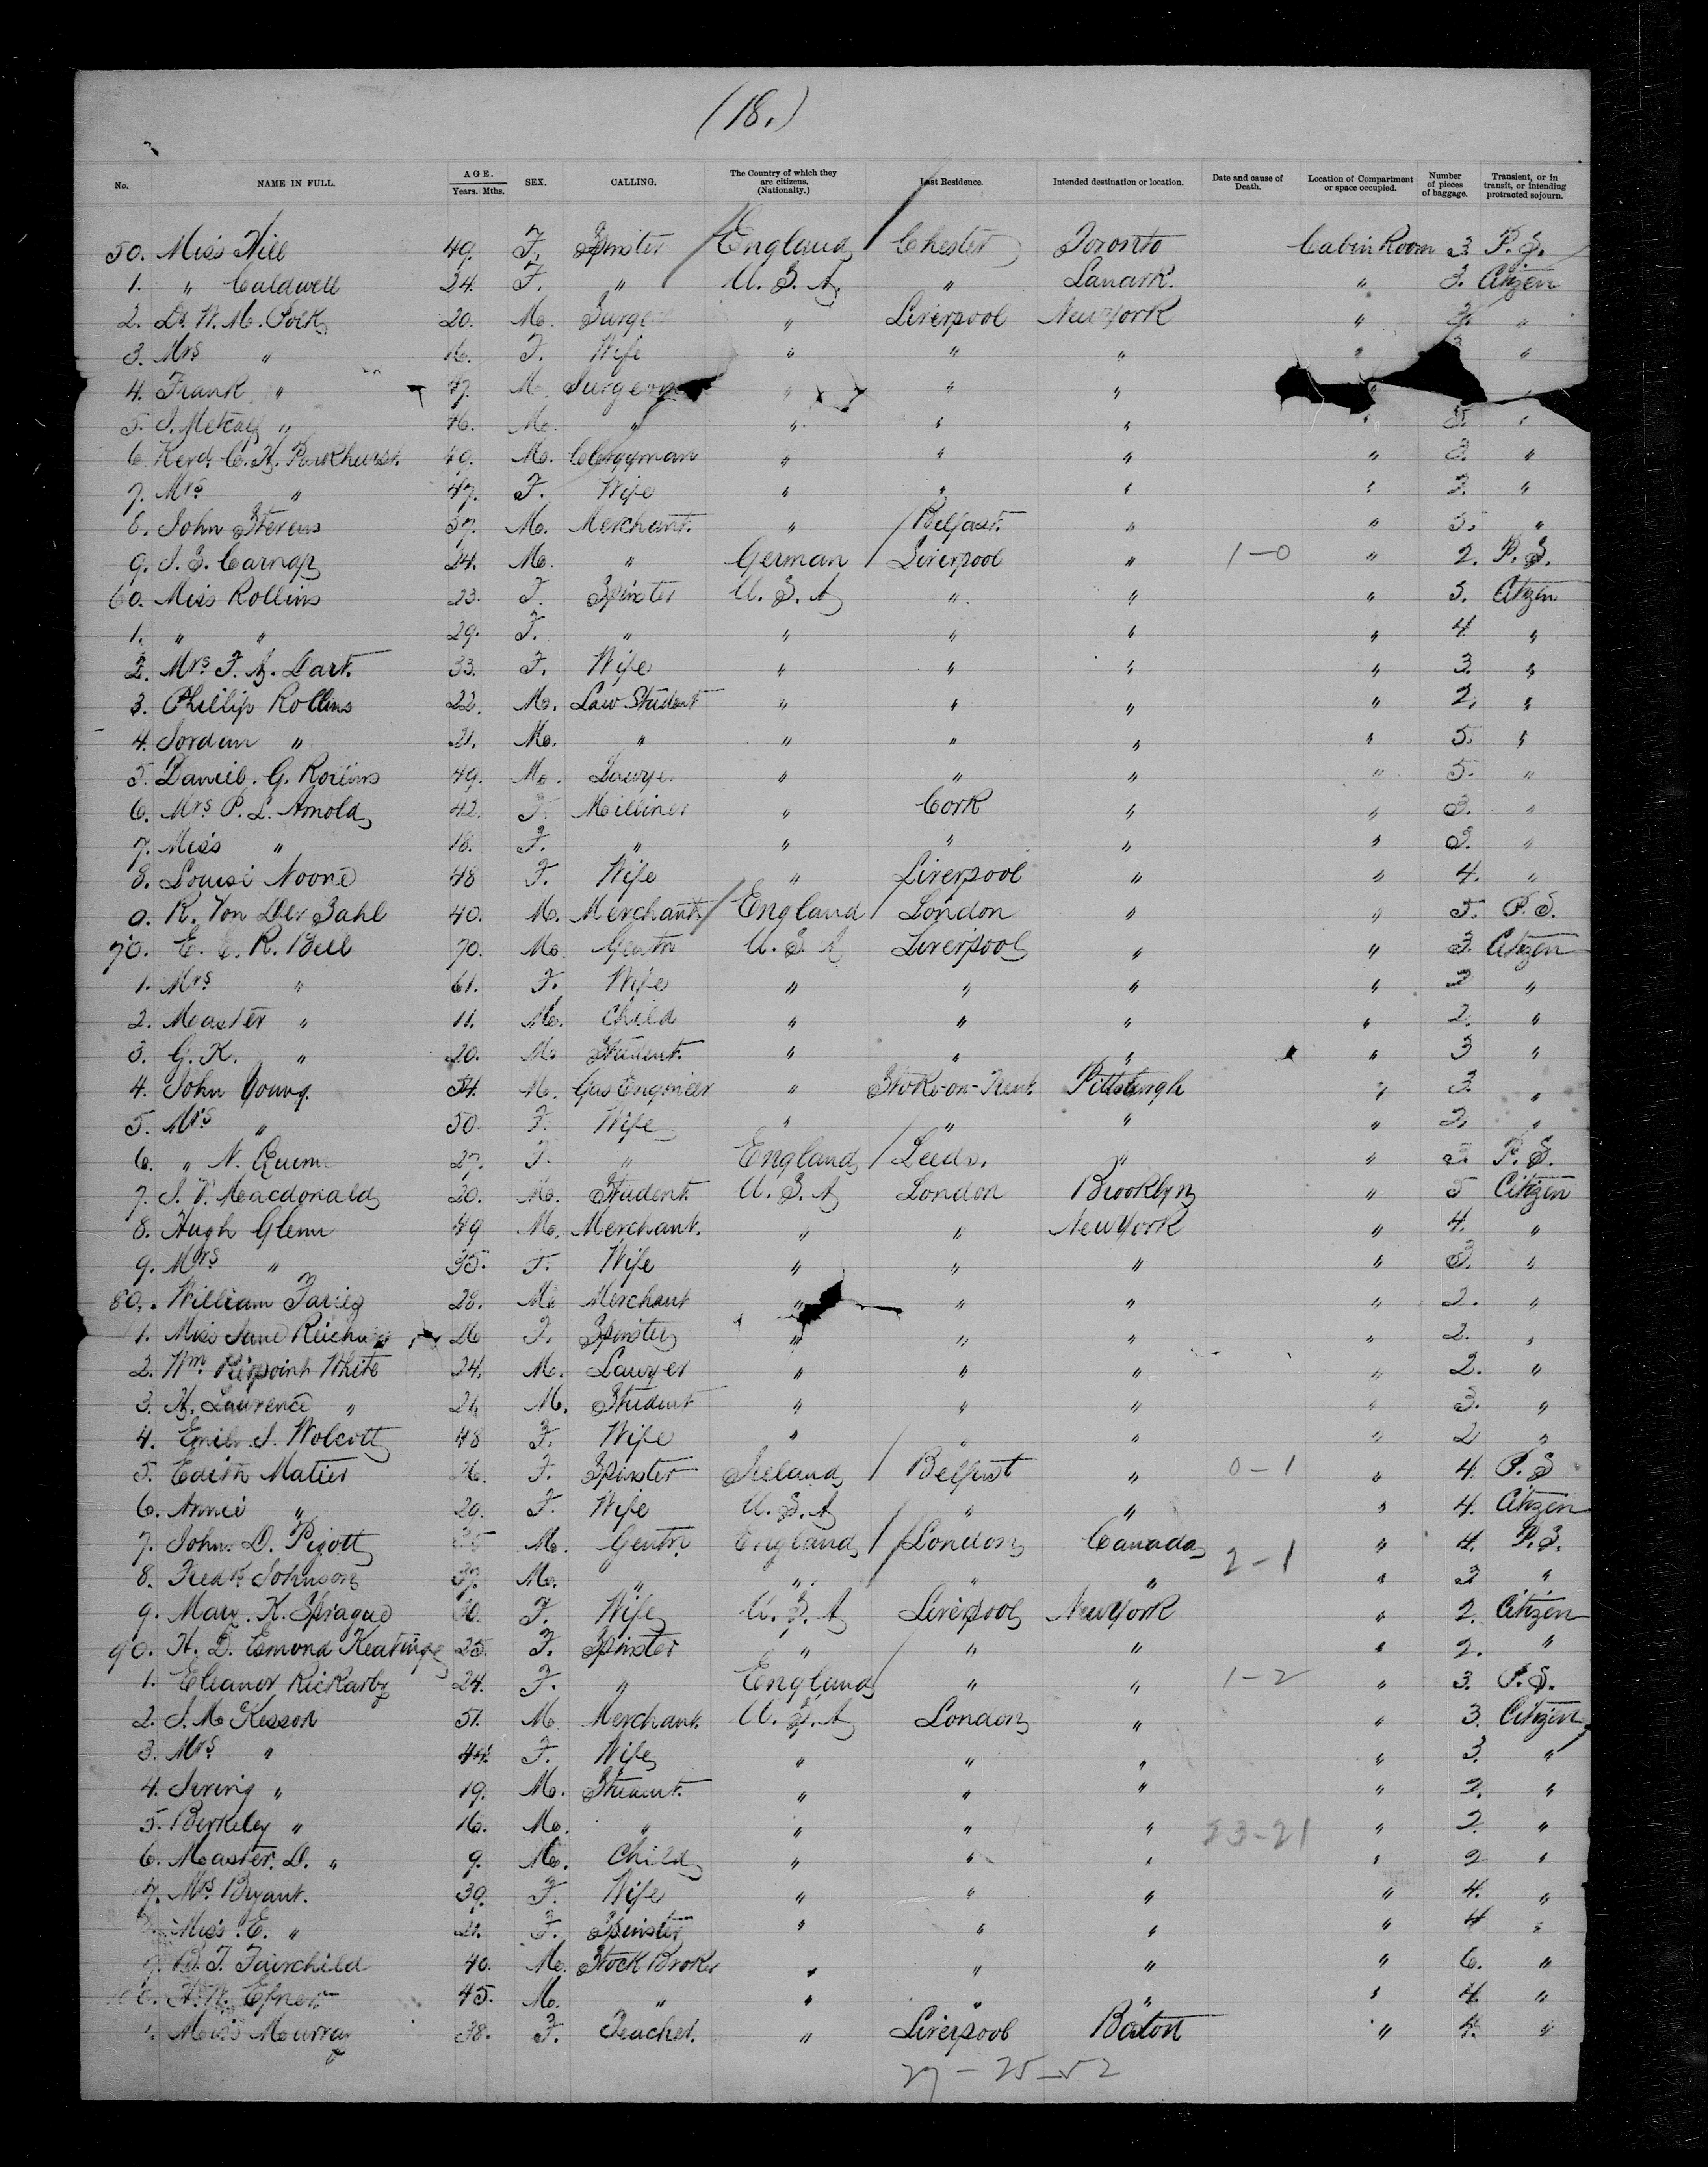 (18.)
No. NAME IN FULL. AGE. Years. Mths. SEX. CALLING. The Country of which they are citizens. (Nationality.) Last Residence. Intended destination or location. Date and cause of Death. Location of Compartment or space occupied. Number of pieces of baggage. Transient, or in transit, or intending protracted sojourn.
50. Miss Hill 49. F. Spinster England Chester Toronto Cabin Room 3 P. S.
1. " Caldwell 24. F. " U. S. A. " Lanark. " 3. Citizen
2. Dr. W. M. Polk 20. M. Liverpool New York " "
3. Mrs " F. Wife " " " "
4. Frank " M. Surgeon " " "
5. J. Metcalf " 16. M. " " " " 5. "
6. Revd. C. H. Parkhurst. 49. M. Clergyman " " " " 3. "
7. Mrs " 47. F. Wife " " " " 2. "
8. John Stevens 37. M. Merchant. " Belfast. " " 3. "
9. J. S. Carnap 24. M. " German Liverpool " 1-0 " 2. P. S.
60. Miss Rollins 23. F. Spinster U. S. A. " " " 3. Citizen
1. " " 29. F. " " " " " 4. "
2. Mrs F. A. Dart. 33. F. Wife " " " " 3. "
3. Phillip Rollins 22. M. Law Student " " " " 2. "
4. Jordan " 21. M. " " " " " 5. "
5. Daniel. G. Rollins 49. M. Lawyer " " " " 5. "
6. Mrs P. L. Arnold 42. F. Milliner " Cork " " 3. "
7. Miss " 18. F. " " " " " 3. "
8. Louise Noone 48 F. Wife " Liverpool " " 4. "
9. R. Von Der Zahl 40. M. Merchant England London " " 5. P. S.
70. E. E. R. Bell 70. M. Gentn U. S. A Liverpool " " 3. Citizen
1. Mrs " 61. F. Wife " " " " 2 "
2. Master " 11. M. Child " " " " 2. "
3. G. K. " 20. M. Student. " " " " 3 "
4. John Young. 54. M. Gas Engineer " Stoke-on-Trent Pittsburgh " 3. "
5. Mrs " 50. F. Wife " " " " 2. "
6. " N. Quinn 27. F. " England Leeds. " " 3. P. S.
7. J. V. Macdonald 20. M. Student. U. S. A London Brooklyn " 5 Citizen
8. Hugh Glenn 49 M. Merchant. " " New York " 4. "
9. Mrs " 35. F. Wife " " " " 3. "
80. William 28. M. Merchant " " " " 2. "
1. Miss Jane 26 F. Spinster " " " " 2. "
2. Wm. Pierpoint White 24. M. Lawyer " " " " 2. "
3. H. Laurence " 21. M. Student " " " " 3. "
4. J. Wolcott 48 F. Wife " " " " 2 "
5. Edith Matier 26. F. Spinster Ireland Belfast " 0-1 " 4. P. S
6. Annie " 29. F. Wife U. S. A " " " 4. Citizen
7. John. D. Pigott M. Gentn. England London Canada " 4. P. S.
8. Fredk Johnson 37. M. " " " " 2-1 " 3 "
9. Mary. K. Sprague 30. F. Wife U. S. A Liverpool New York " 2. Citizen
90. H. D. Esmond Keatinge 25. F. Spinster " " " " 2. "
1. Eleanor Rickarby 24. F. " England " " 1-2 " 3. P. S.
2. J. McKesson 51. M. Merchant. U. S. A London " " 3. Citizen
3. Mrs " 44. F. Wife " " " " 3. "
4. Irving " 19. M. Student. " " " " 2. "
5. Berkeley " 16. M. " " " " 23-21 " 2. "
6. Master. D. " 9. M. Child " " " " 2 "
7. Mrs Bryant. 39. F. Wife " " " " 4. "
Miss E. " 21. F. Spinster " " " " 4 "
B. T. Fairchild 40. M. Stock Broker " " " " 6. "
45. M. " " " " " 4. "
1. Miss Murray 38. F. Teacher. " Liverpool Boston " 4. "
27-25-52